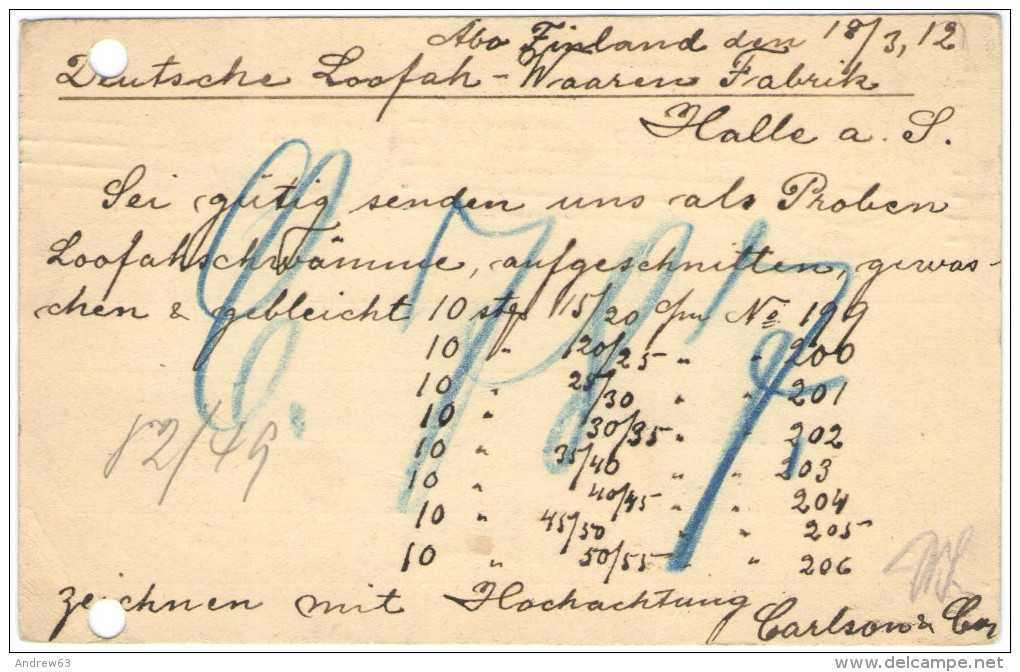 Abo Finland den 18/3, 12
Deutsche Loofah-Waaren Fabrik
Halle a. S.
Sei gütig senden uns als Proben
Loofahschwämme, aufgeschnitten, gewas-
chen & gebleicht 10 stps 15/20 c/m No 199
10 " 20/25 " " 200
10 " 25/30 " " 201
10 " 30/35 " " 202
10 " 35/40 " " 203
10 " 40/45 " " 204
10 " 45/50 " " 205
10 " 50/55 " " 206
12/49
zeichnen mit Hochachtung
Carlson & Co
Andrew63
www.delcampe.net